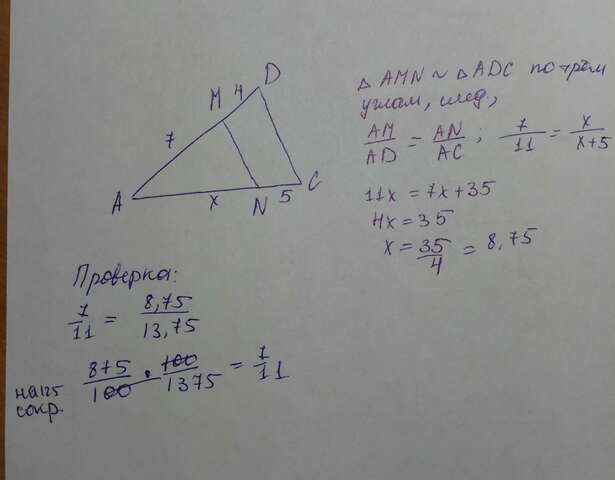 D
M 4
7
A x N 5 C
△ AMN ~ △ ADC по трём
углам, след.,
AM/AD = AN/AC ; 7/11 = x/x+5
11x = 7x+35
4x = 35
x = 35/4 = 8,75
Проверка:
7/11 = 8,75/13,75
на 125 сокр. 875/100 · 100/1375 = 7/11